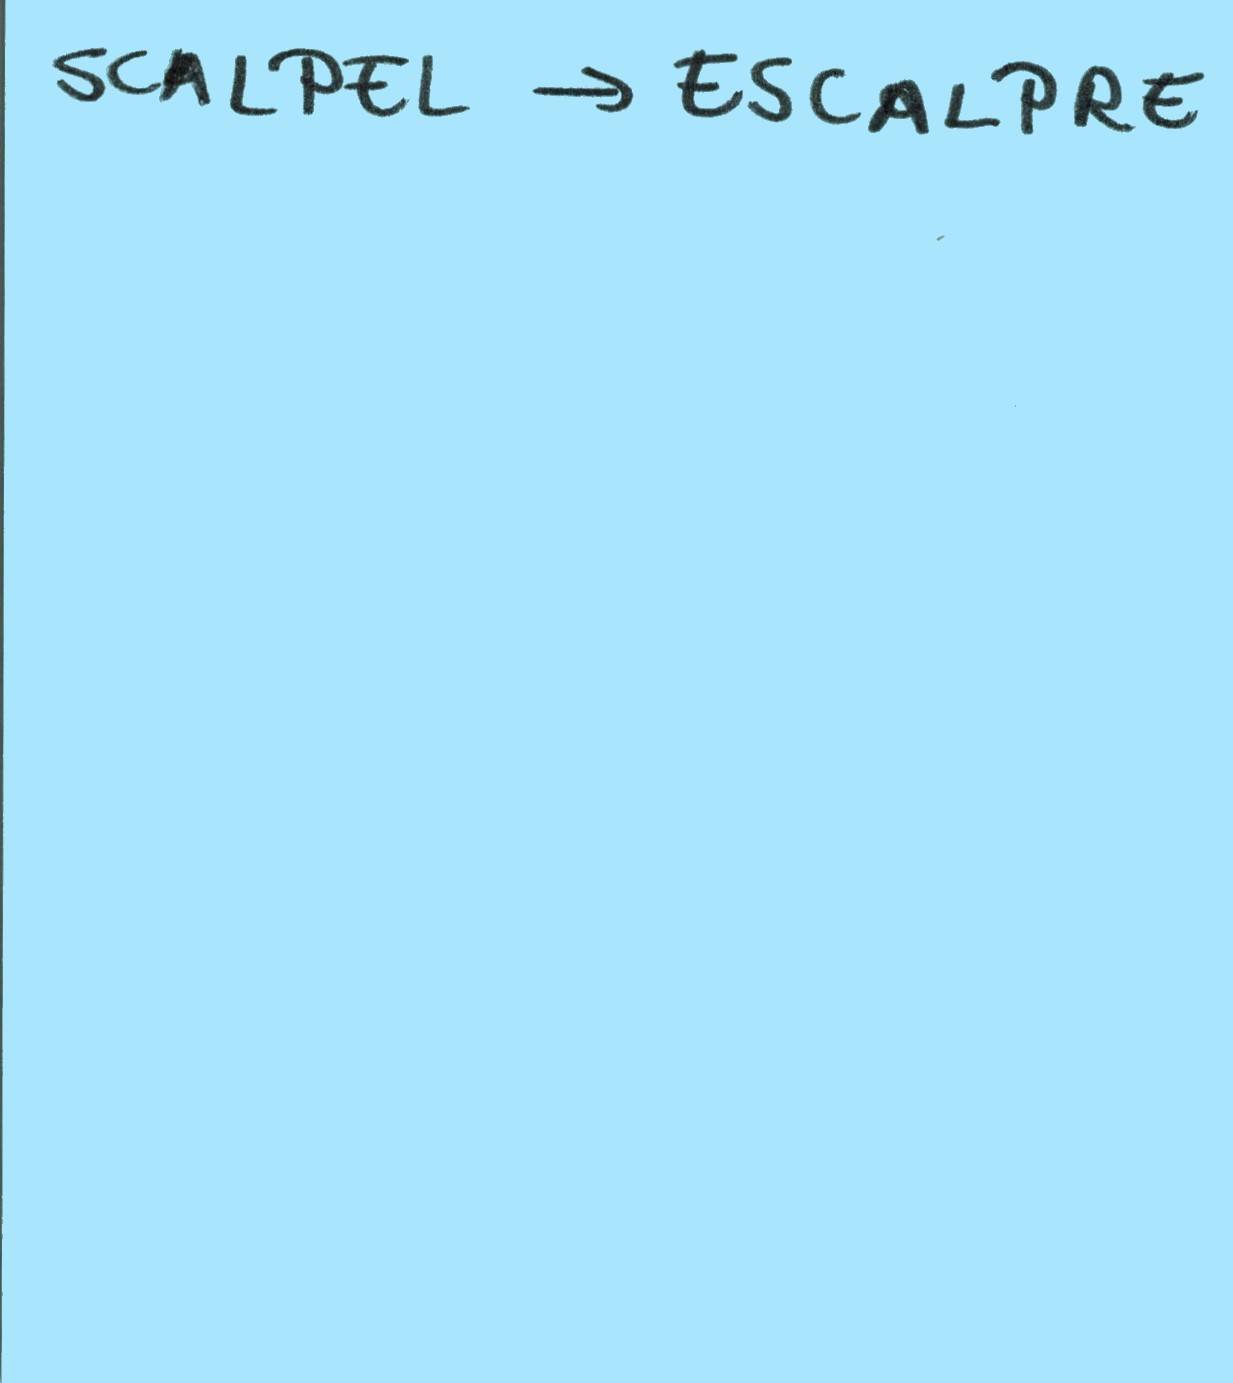 SCALPEL → ESCALPRE